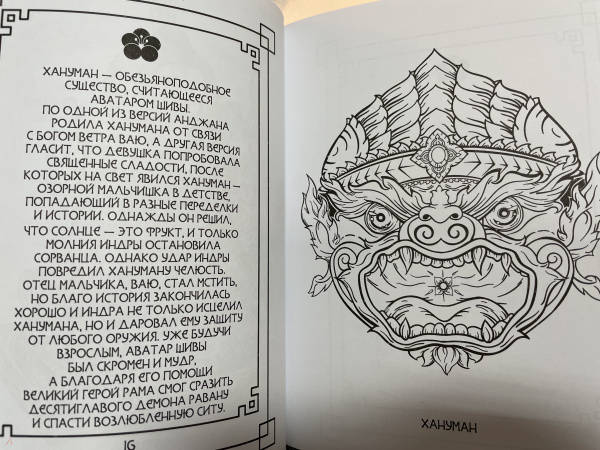 ХАНУМАН — ОБЕЗЬЯНОПОДОБНОЕ
СУЩЕСТВО, СЧИТАЮЩЕЕСЯ
АВАТАРОМ ШИВЫ.
ПО ОДНОЙ ИЗ ВЕРСИЙ АНДЖАНА
РОДИЛА ХАНУМАНА ОТ СВЯЗИ
С БОГОМ ВЕТРА ВАЮ, А ДРУГАЯ ВЕРСИЯ
ГЛАСИТ, ЧТО ДЕВУШКА ПОПРОБОВАЛА
СВЯЩЕННЫЕ СЛАДОСТИ, ПОСЛЕ
КОТОРЫХ НА СВЕТ ЯВИЛСЯ ХАНУМАН —
ОЗОРНОЙ МАЛЬЧИШКА В ДЕТСТВЕ,
ПОПАДАЮЩИЙ В РАЗНЫЕ ПЕРЕДЕЛКИ
И ИСТОРИИ. ОДНАЖДЫ ОН РЕШИЛ,
ЧТО СОЛНЦЕ — ЭТО ФРУКТ, И ТОЛЬКО
МОЛНИЯ ИНДРЫ ОСТАНОВИЛА
СОРВАНЦА. ОДНАКО УДАР ИНДРЫ
ПОВРЕДИЛ ХАНУМАНУ ЧЕЛЮСТЬ.
ОТЕЦ МАЛЬЧИКА, ВАЮ, СТАЛ МСТИТЬ,
НО БЛАГО ИСТОРИЯ ЗАКОНЧИЛАСЬ
ХОРОШО И ИНДРА НЕ ТОЛЬКО ИСЦЕЛИЛ
ХАНУМАНА, НО И ДАРОВАЛ ЕМУ ЗАЩИТУ
ОТ ЛЮБОГО ОРУЖИЯ. УЖЕ БУДУЧИ
ВЗРОСЛЫМ, АВАТАР ШИВЫ
БЫЛ СКРОМЕН И МУДР,
А БЛАГОДАРЯ ЕГО ПОМОЩИ
ВЕЛИКИЙ ГЕРОЙ РАМА СМОГ СРАЗИТЬ
ДЕСЯТИГЛАВОГО ДЕМОНА РАВАНУ
И СПАСТИ ВОЗЛЮБЛЕННУЮ СИТУ.
16
ХАНУМАН